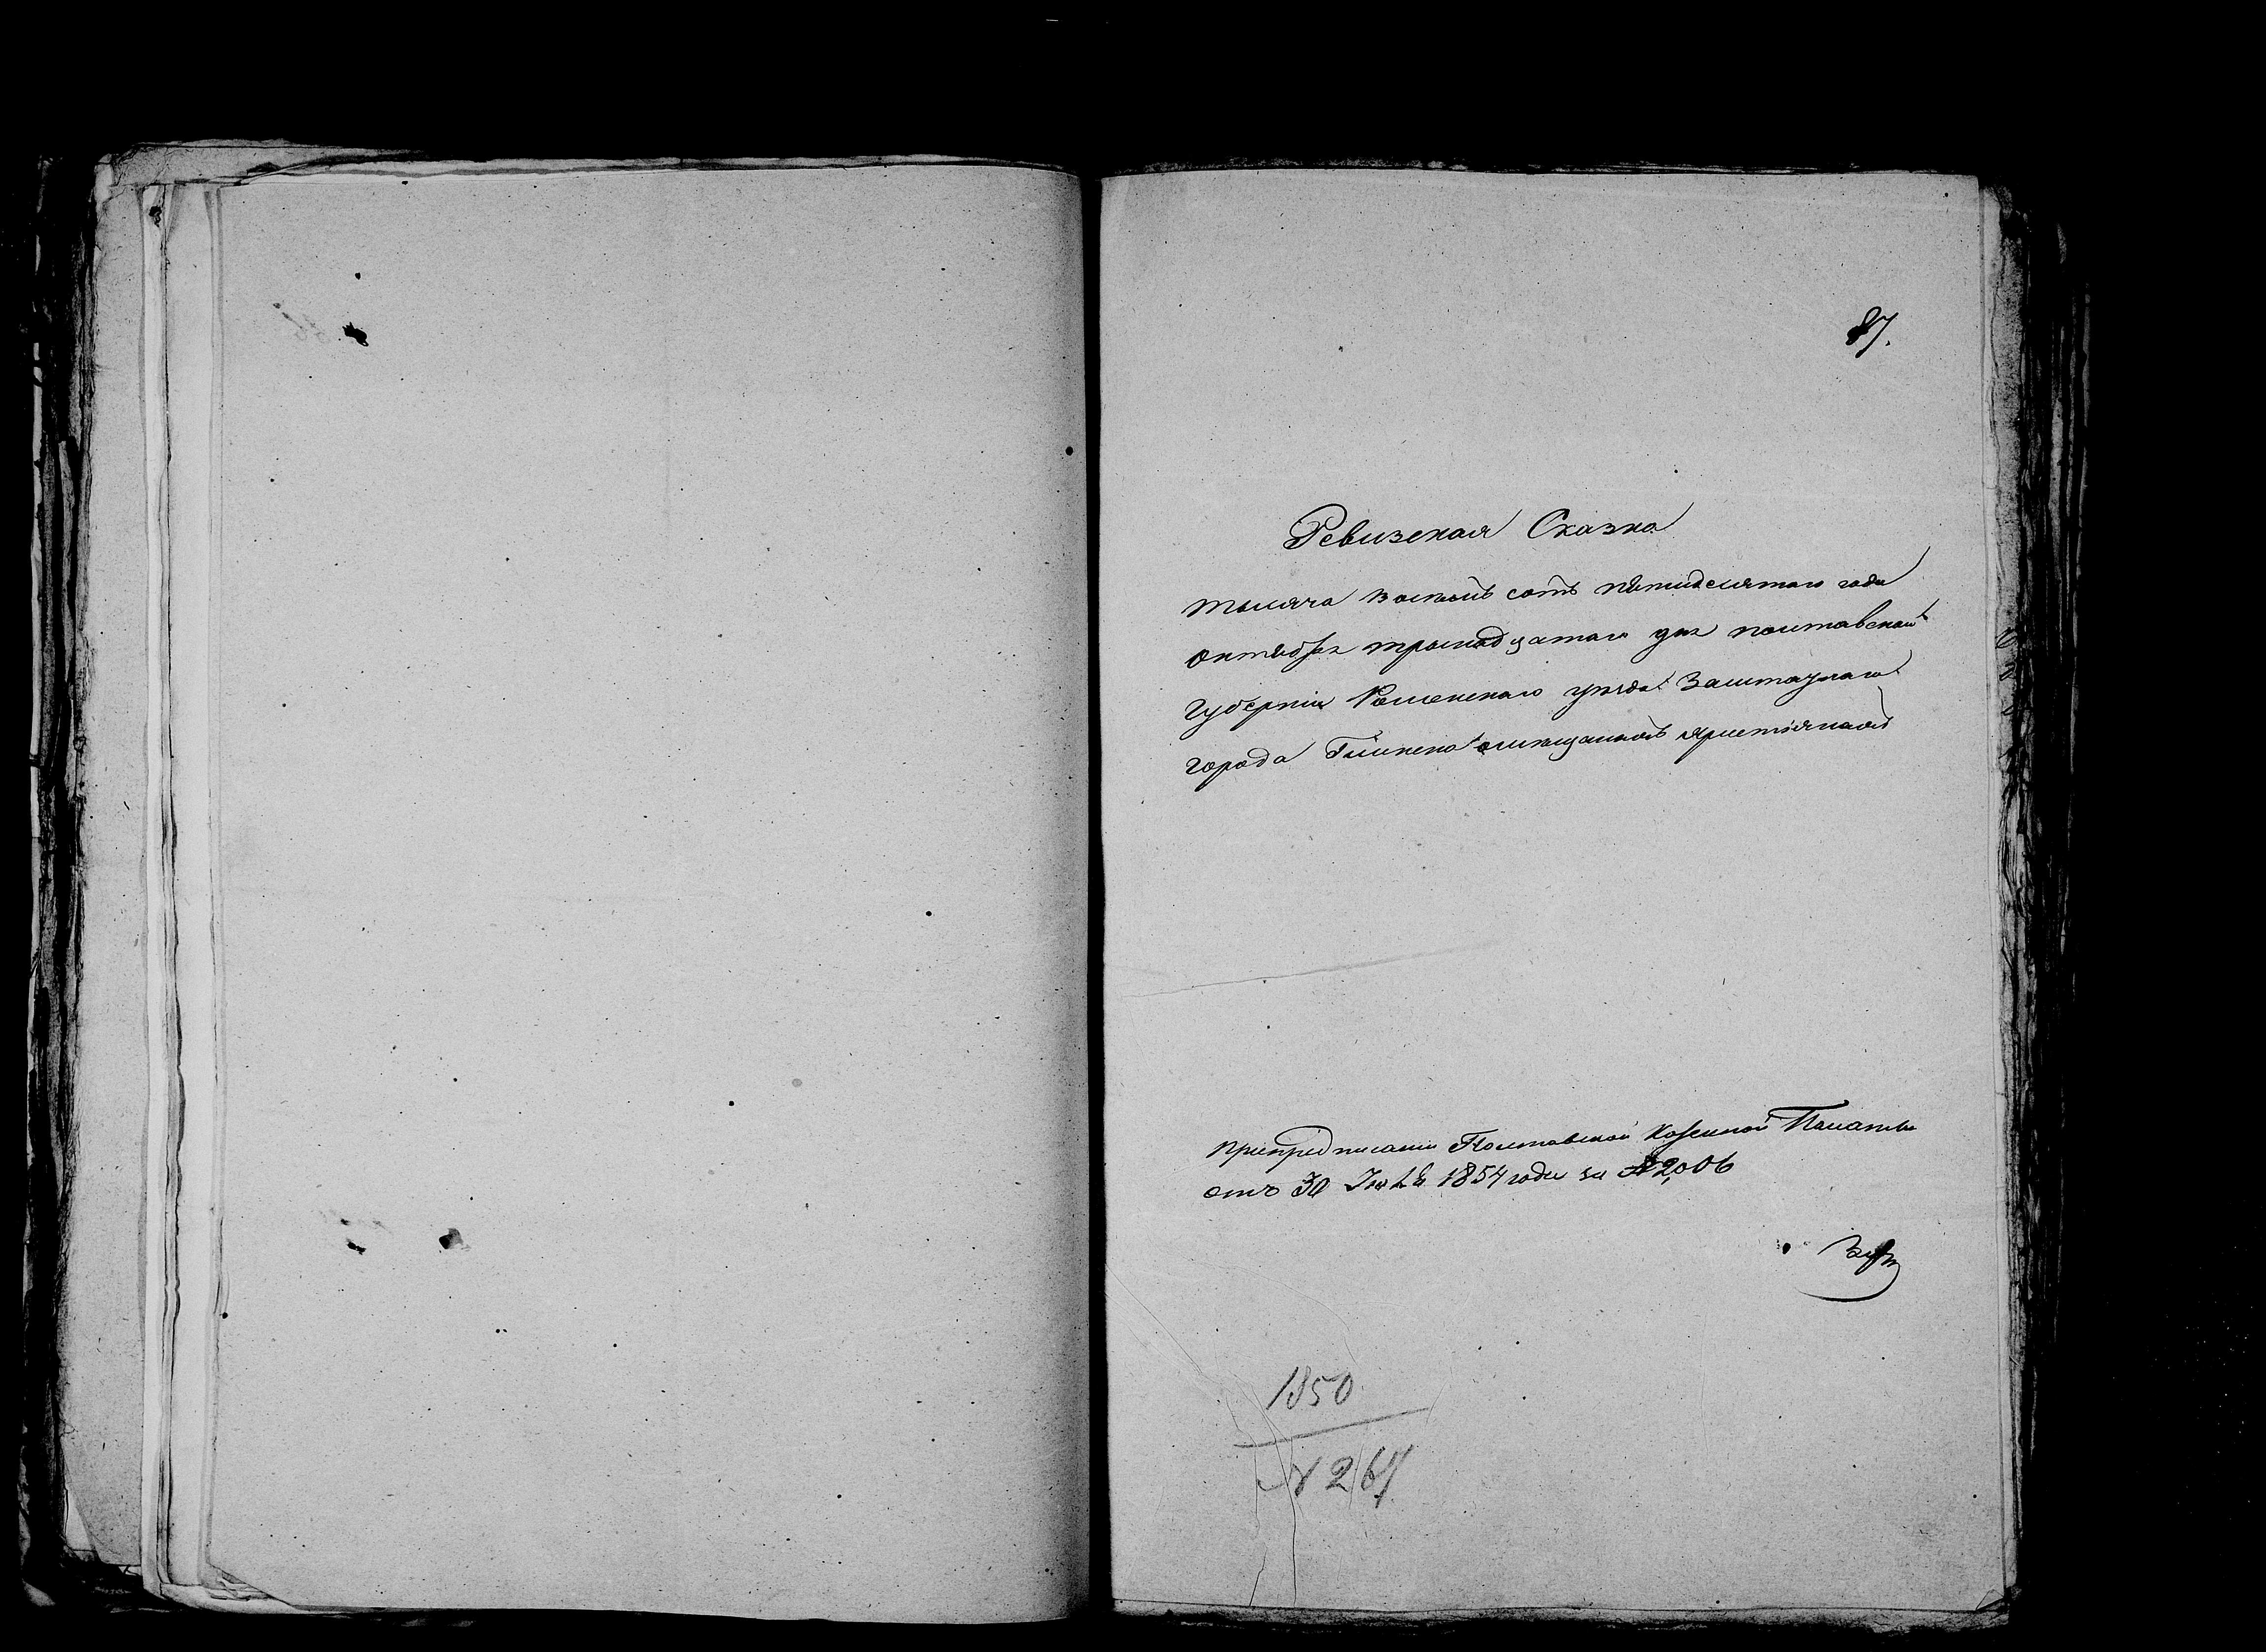 87.
Ревизская Сказка
тысяча восемь сотъ пятидесятаго года
октября трынадцатаго дня полтавской
Губерніи Роменскаго уезда Заштатнаго
города Глинско мещаномъ христіяномъ
При предписании Полтавской Казенной Палаты
отъ 30 Іюля 1854 года за № 2006
1850
№ 267